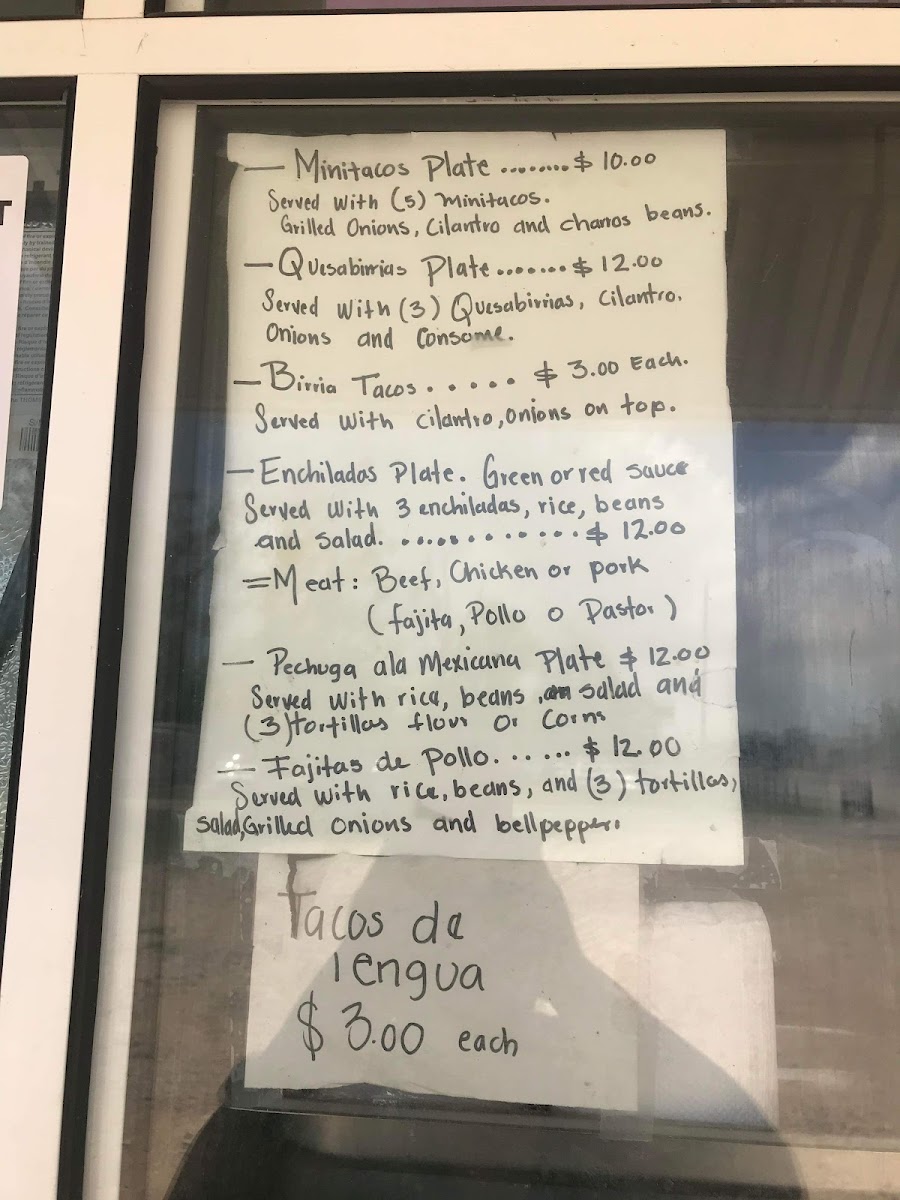 — Minitacos Plate ........ $ 10.00
Served With (5) minitacos.
Grilled Onions, Cilantro and charros beans.
— Quesabirrias Plate....... $ 12.00
Served with (3) Quesabirrias, Cilantro,
Onions and Consome.
— Birria Tacos . . . . . . $ 3.00 Each.
Served with cilantro, onions on top.
— Enchiladas Plate. Green or red sauce
Served with 3 enchiladas, rice, beans
and salad. ............. $ 12.00
=Meat: Beef, Chicken or pork
(fajita, Pollo o Pastor)
— Pechuga ala Mexicana Plate $ 12.00
Served with rice, beans, salad and
(3) tortillas flour or Corns
— Fajitas de Pollo. . . . . . . $ 12.00
Served with rice, beans, and (3) tortillas,
salad, Grilled onions and bellpepper.
Tacos de
lengua
$ 3.00 each